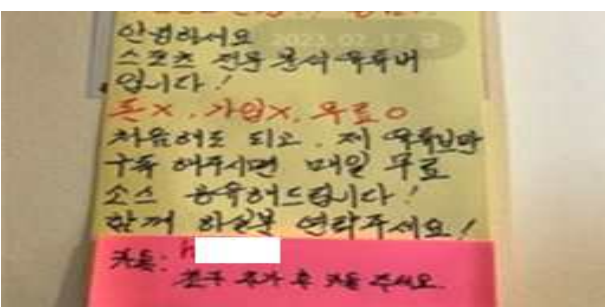 안녕하세요
2023. 02. 17 금
스포츠 전문 분석 유튜버
입니다!
돈X, 가입X, 무료O
처음해도 되고, 제 유튜브만
구독 해주시면 매일 무료
소스 공유해드립니다!
함께 하실분 연락주세요!
카톡: H
친구 추가 후 카톡 주세요.